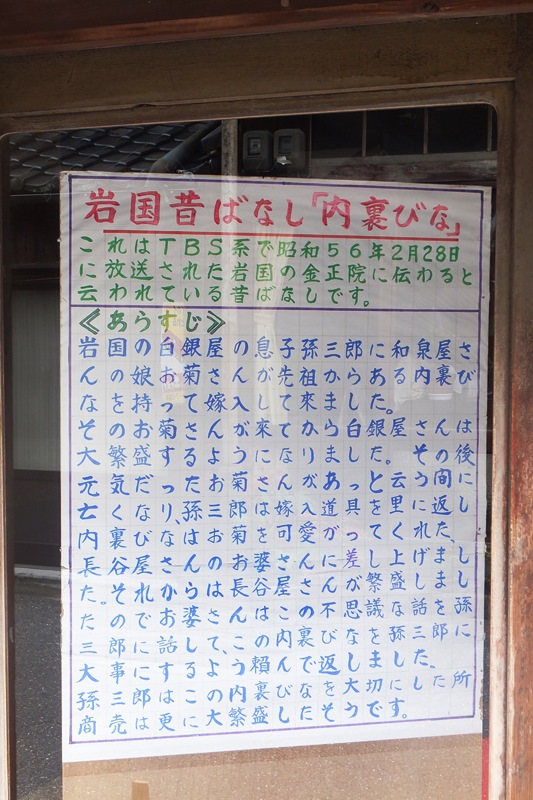 岩国昔ばなし「内裏びな」
これはTBS系で昭和56年2月28日
に放送された岩国の金正院に伝わると
云われている昔ばなしです。
《あらすじ》
岩国の白銀屋の息子孫三郎に和泉屋さ
んの娘お菊さんが先祖からある内裏び
なを持って嫁入して來ました。
そのお菊さんが來てから白銀屋さんは
大繁盛するようになりました。その後
元気だったお菊さんがあっと云う間に
亡くなり、孫三郎は嫁入道具を里に返し
内裏びなはお菊を可愛がってくれた、
長谷屋さんのお婆さんに差し上げまし
た。それから長谷屋さんが繁盛しまし
たのでお婆さんはこの不思議な話を孫
三郎に話して、この内裏びなを孫三郎に
大事にするよう頼んで返しました。
孫三郎はこの内裏びなを大切にした所
商売は更に大繁盛したそうです。